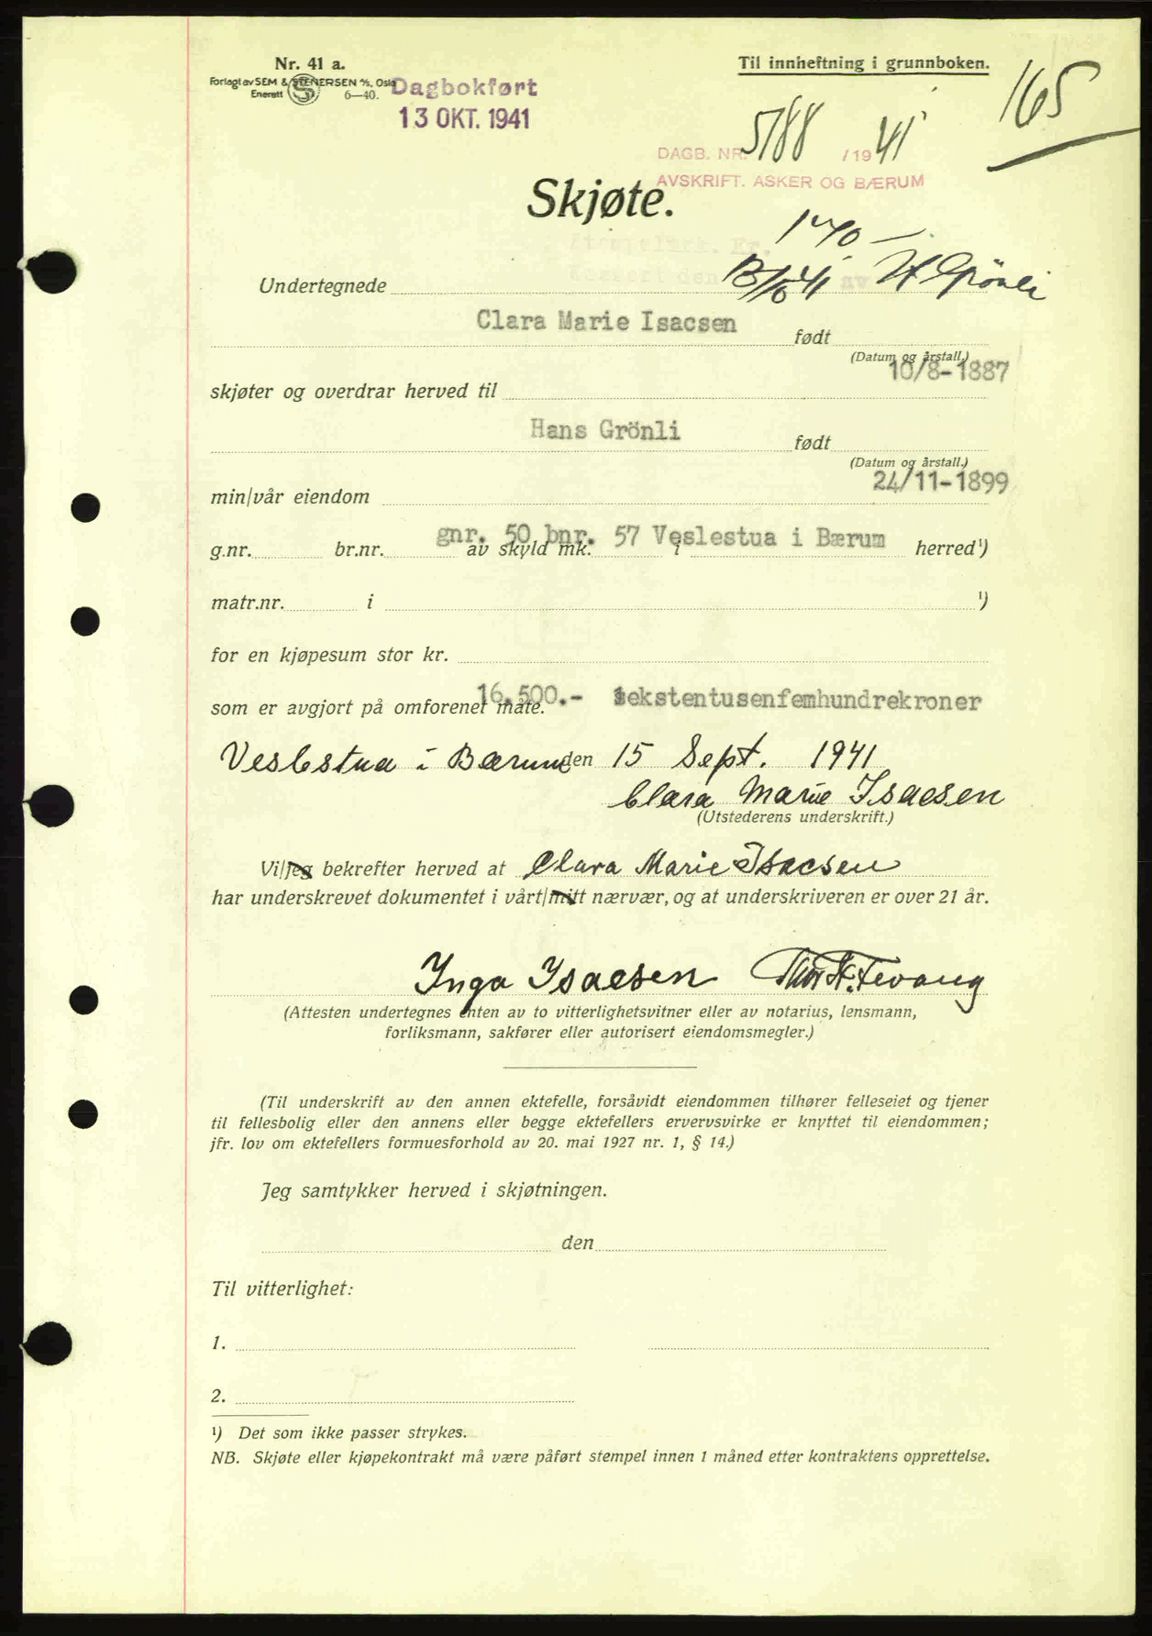 Nr. 41 a.
Forlagt av SEM & STENERSEN A/S, Oslo
Enerett 6—40.
Dagbokført
13 OKT. 1941
Til innheftning i grunnboken.
165
DAGB. NR. 5788 /1941
AVSKRIFT. ASKER OG BÆRUM
Skjøte.
170 —
13/10 41 H Grönli
Undertegnede
Clara Marie Isacsen født
(Datum og årstall.)
10/8-1887
skjøter og overdrar herved til
Hans Grönli født
(Datum og årstall.)
24/11-1899
min/vår eiendom
gnr. 50 bnr. 57 Veslestua i Bærum
g.nr. br.nr. av skyld mk. i herred¹)
matr.nr. i ¹)
for en kjøpesum stor kr.
16.500.- sekstentusenfemhundrekroner
som er avgjort på omforenet måte.
Veslestua i Bærum den 15 Sept. 1941
Clara Marie Isacsen
(Utstederens underskrift.)
Vi/jeg bekrefter herved at Clara Marie Isacsen
har underskrevet dokumentet i vårt/mitt nærvær, og at underskriveren er over 21 år.
Inga Isacsen Thor H. Tevang
(Attesten undertegnes enten av to vitterlighetsvitner eller av notarius, lensmann,
forliksmann, sakfører eller autorisert eiendomsmegler.)
(Til underskrift av den annen ektefelle, forsåvidt eiendommen tilhører felleseiet og tjener
til fellesbolig eller den annens eller begge ektefellers ervervsvirke er knyttet til eiendommen;
jfr. lov om ektefellers formuesforhold av 20. mai 1927 nr. 1, § 14.)
Jeg samtykker herved i skjøtningen.
den
Til vitterlighet:
1.
2.
¹) Det som ikke passer strykes.
NB. Skjøte eller kjøpekontrakt må være påført stempel innen 1 måned etter kontraktens opprettelse.